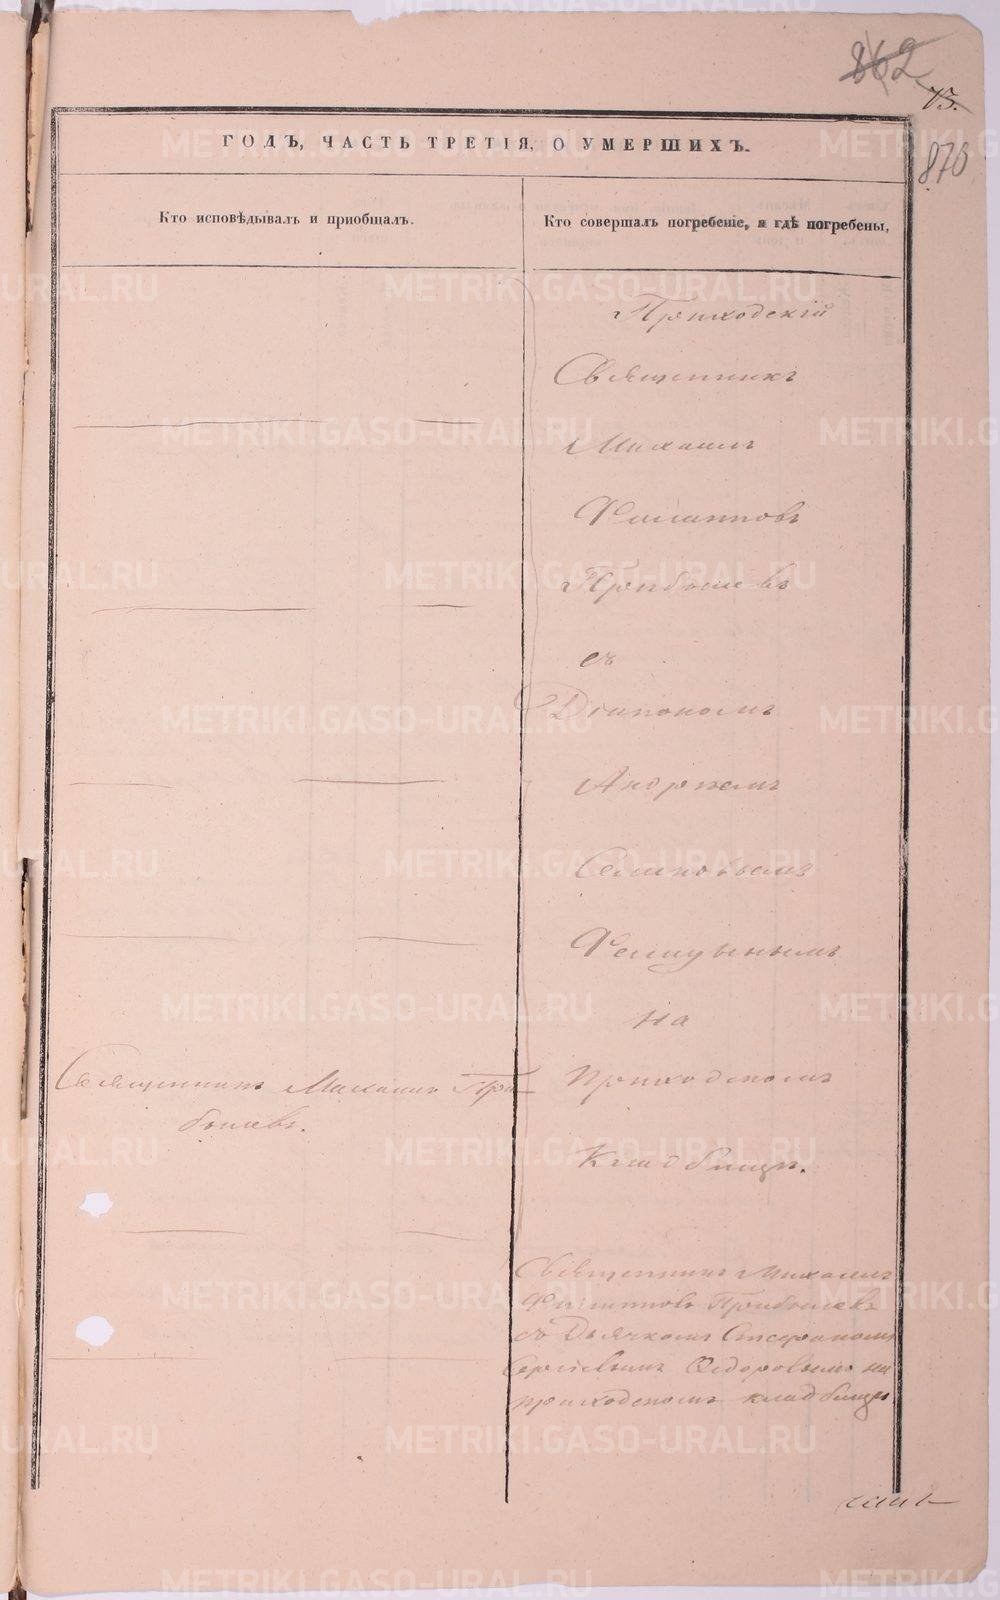 862
75.
876
ГОДЪ, ЧАСТЬ ТРЕТІЯ, О УМЕРШИХЪ.
Кто исповѣдывалъ и пріобщалъ.
Кто совершалъ погребеніе, и гдѣ погребены,
Приходскій
Священникъ
Михаилъ
Филипповъ
Прибылевъ
съ
Діакономъ
Андреемъ
на
Священникъ Михаилъ При
былевъ.
Приходскомъ
Кладбищѣ.
Священникъ Михаилъ
Филипповъ Прибылевъ
съ Дьячкомъ Стефаномъ
Сергѣевымъ Ѳедоровымъ на
приходскомъ кладбищѣ
METRIKI.GASO-URAL.RU